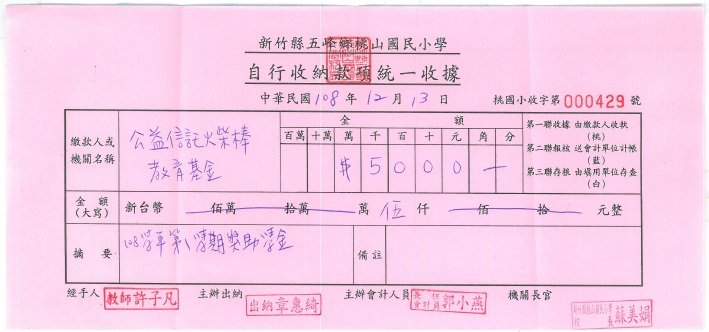 新竹縣五峰鄉桃山國民小學
自行收納款項統一收據
中華民國 108 年 12 月 13 日 桃國小收字第 000429 號
繳款人或機關名稱 公益信託火柴棒教育基金
金 額
百萬 十萬 萬 千 百 十 元 角 分
$ 5 0 0 0 一
第一聯收據 由繳款人收執(桃)
第二聯報核 送會計單位計帳(藍)
第三聯存根 由填用單位存查(白)
金 額(大寫) 新台幣 佰萬 拾萬 萬 伍 仟 佰 拾 元整
摘 要 108學年第1學期獎助學金 備註
經手人 教師許子凡 主辦出納 出納章惠綺 主辦會計人員 會計員郭小燕 機關長官 校長蘇美娟